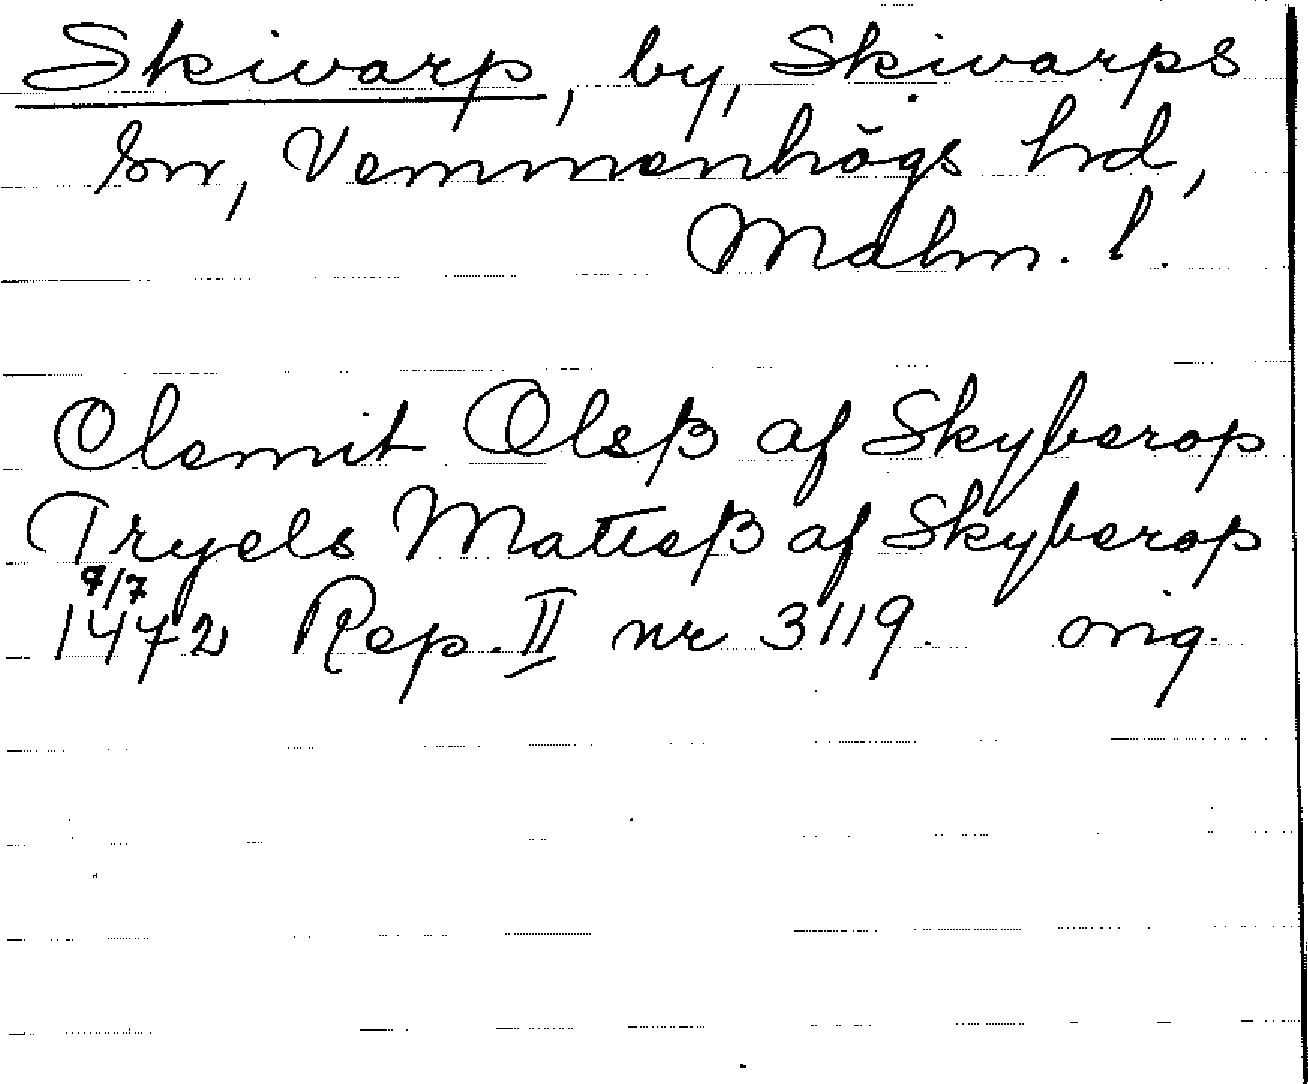 Skivarp, by, Skivarps
sn, Vemmenhögs hd,
Malm. l.
Clemit Olsß af Skyberop
Tryels Matiesß af Skyberop
9/7
1472 Rep. II nr 3119. orig.